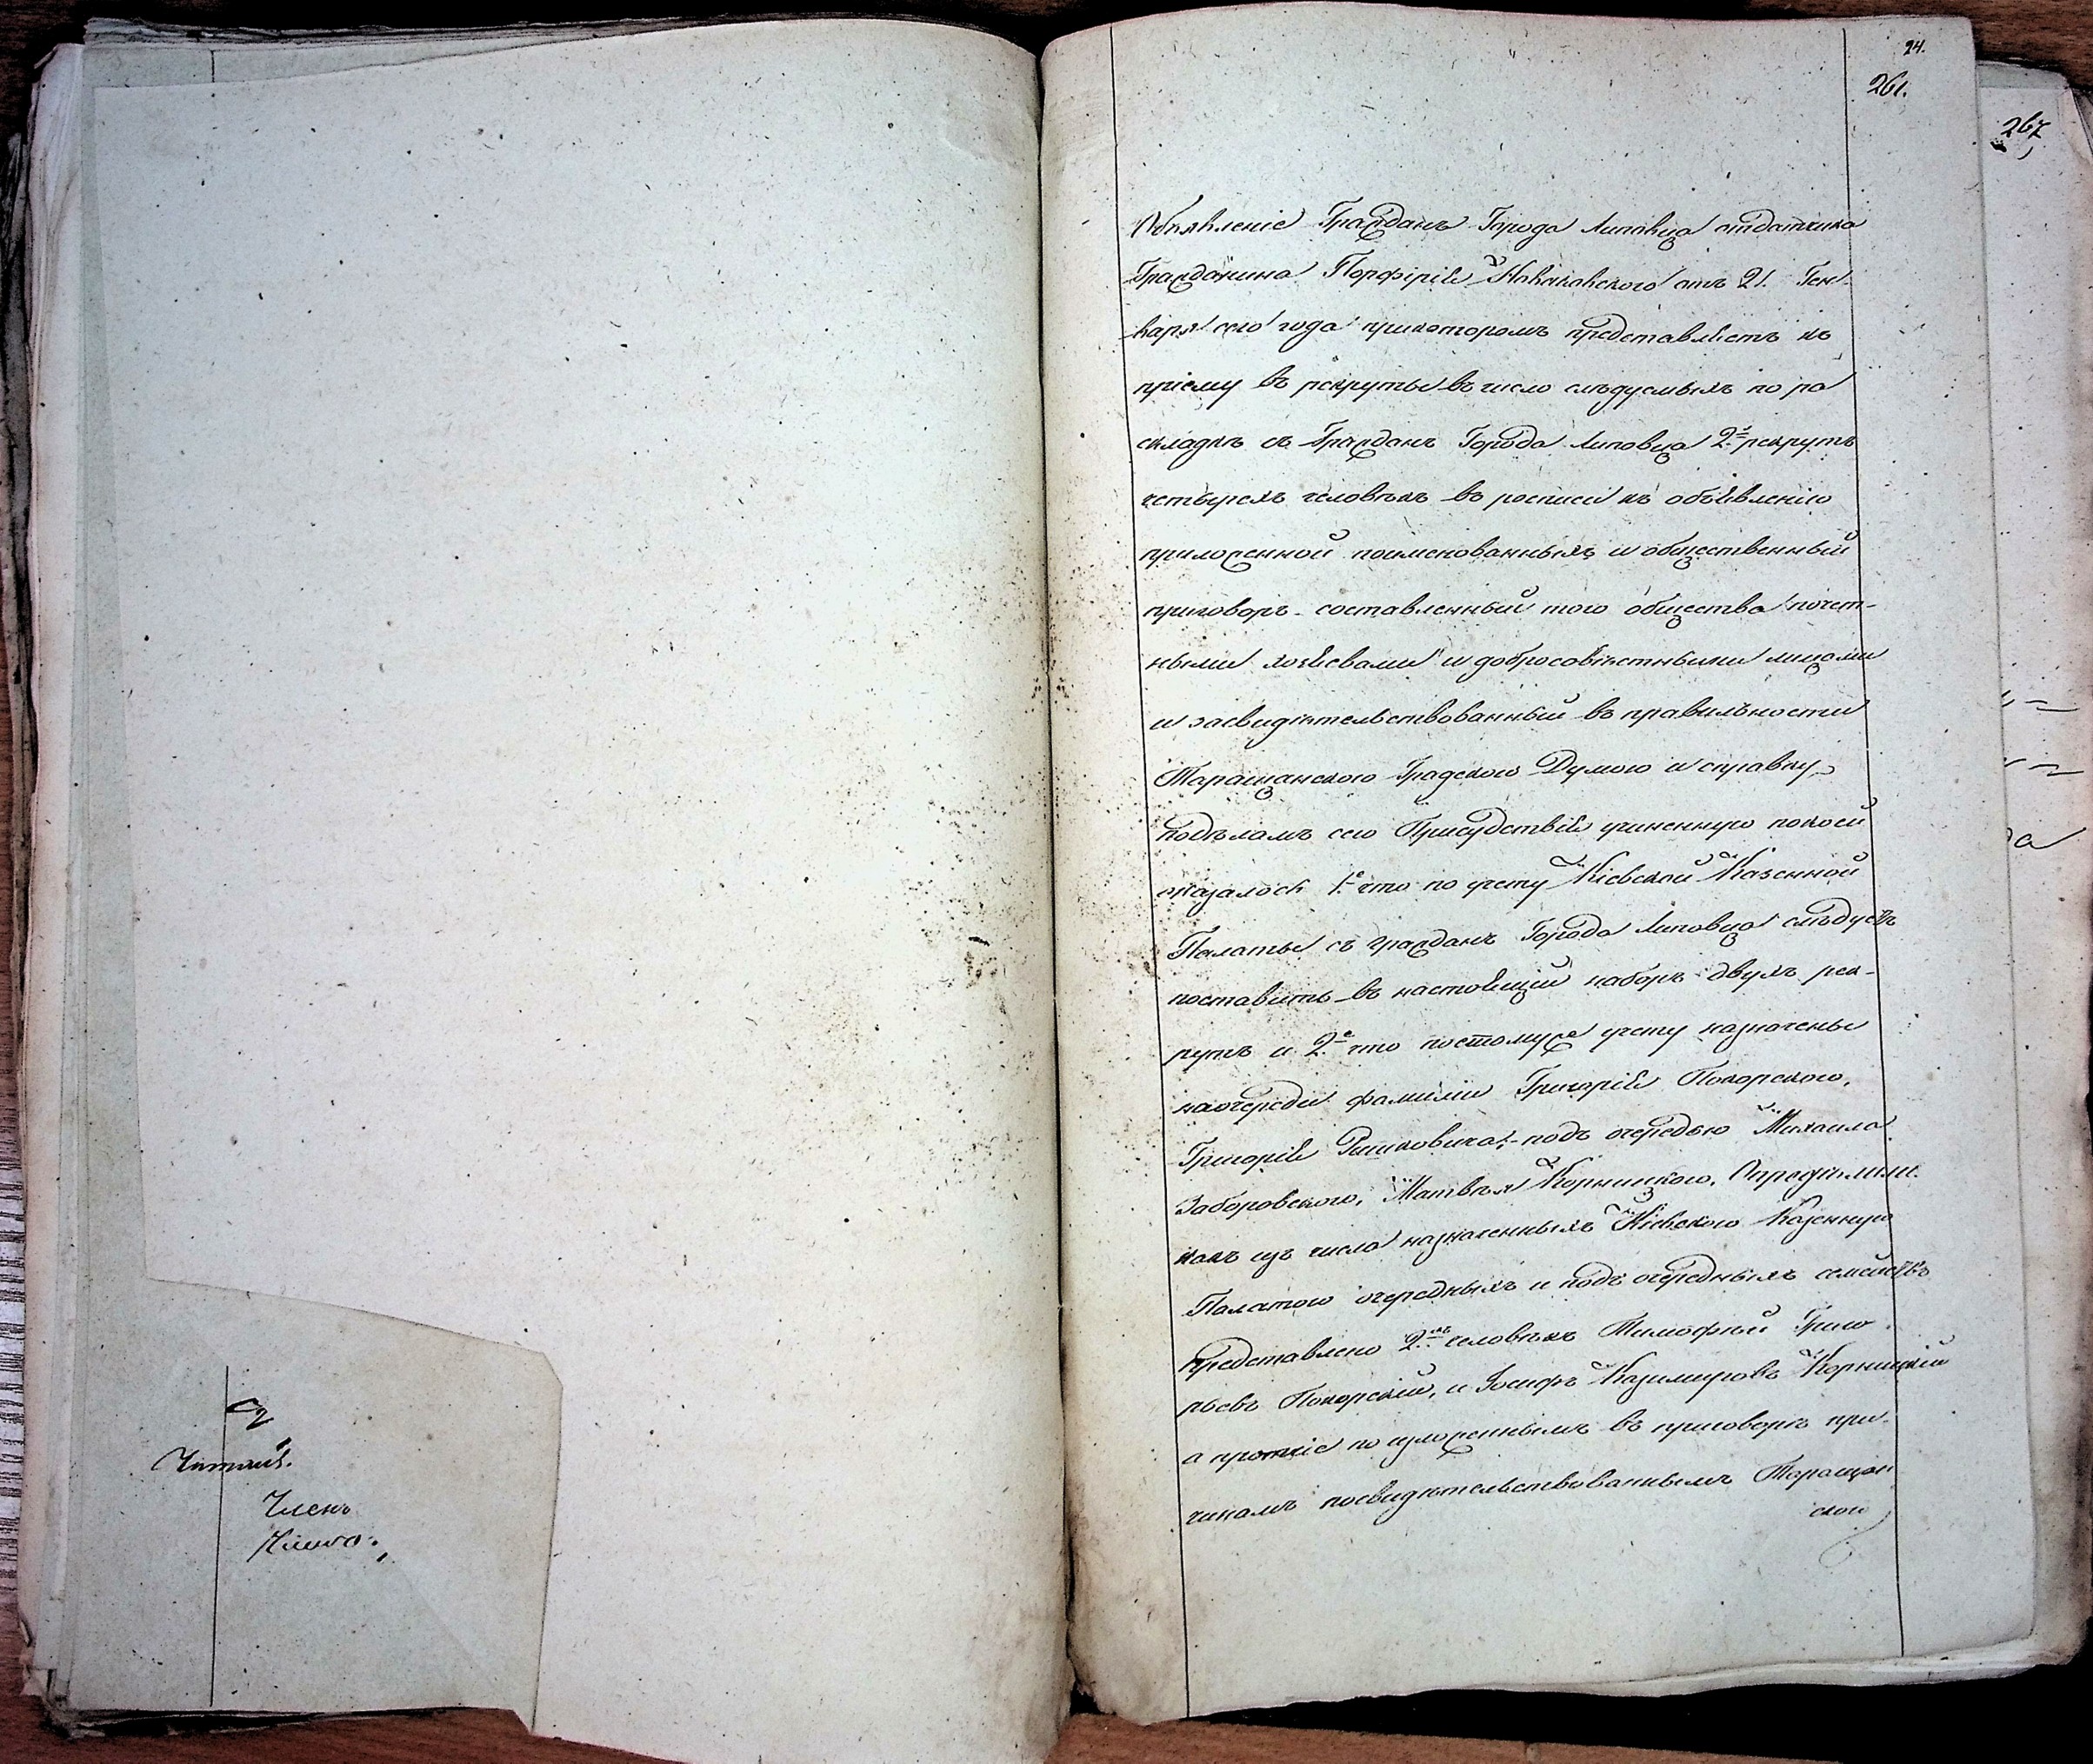 Читалъ.
Членъ
24.
261.
267
Объявленіе Гражданъ Города Липовца отдатчика
Гражданина Порфірія Новаковского отъ 21. Ген-
варя сего года прикоторомъ представляетъ къ
пріему въ рекруты въ число слѣдуемыхъ по ра
складкѣ съ Гражданъ Города Липовца 2хъ рекрутъ
четырехъ человѣкъ въ росписи къ объявленію
приложенной поименованныхъ и общественный
приговоръ составленный того общества почет-
ными хозяевами и добросовѣстными лицами
и засвидѣтельствованный въ правильности
Таращанскою Градскою Думою и справку
подѣламъ сего Присудствія учиненную покоей
оказалось 1е что по учету Кіевской Казенной
Палаты съ гражданъ Города Липовца слѣдуетъ
поставить въ настоящій наборъ двухъ рек-
рутъ и 2е что поэтомуже учету назначены
наочереди фамиліи Григорія Покорского,
Григорія Рашковича,- подъ очередью Михаила
Заборовского, Матвѣя Корницкого. Опредѣлили:
какъ изъ числа назначенныхъ Кіевскою Казенную
Палатою очередныхъ и подъ очередныхъ семействъ
представлено 2хъ человѣкъ Тимофѣй Григо
рьевъ Покорскій, и Іосифъ Казимировъ Корницкій
а протчіе по изложеннымъ въ приговорѣ при-
чинамъ посвидѣтельствованнымъ Таращан
скою